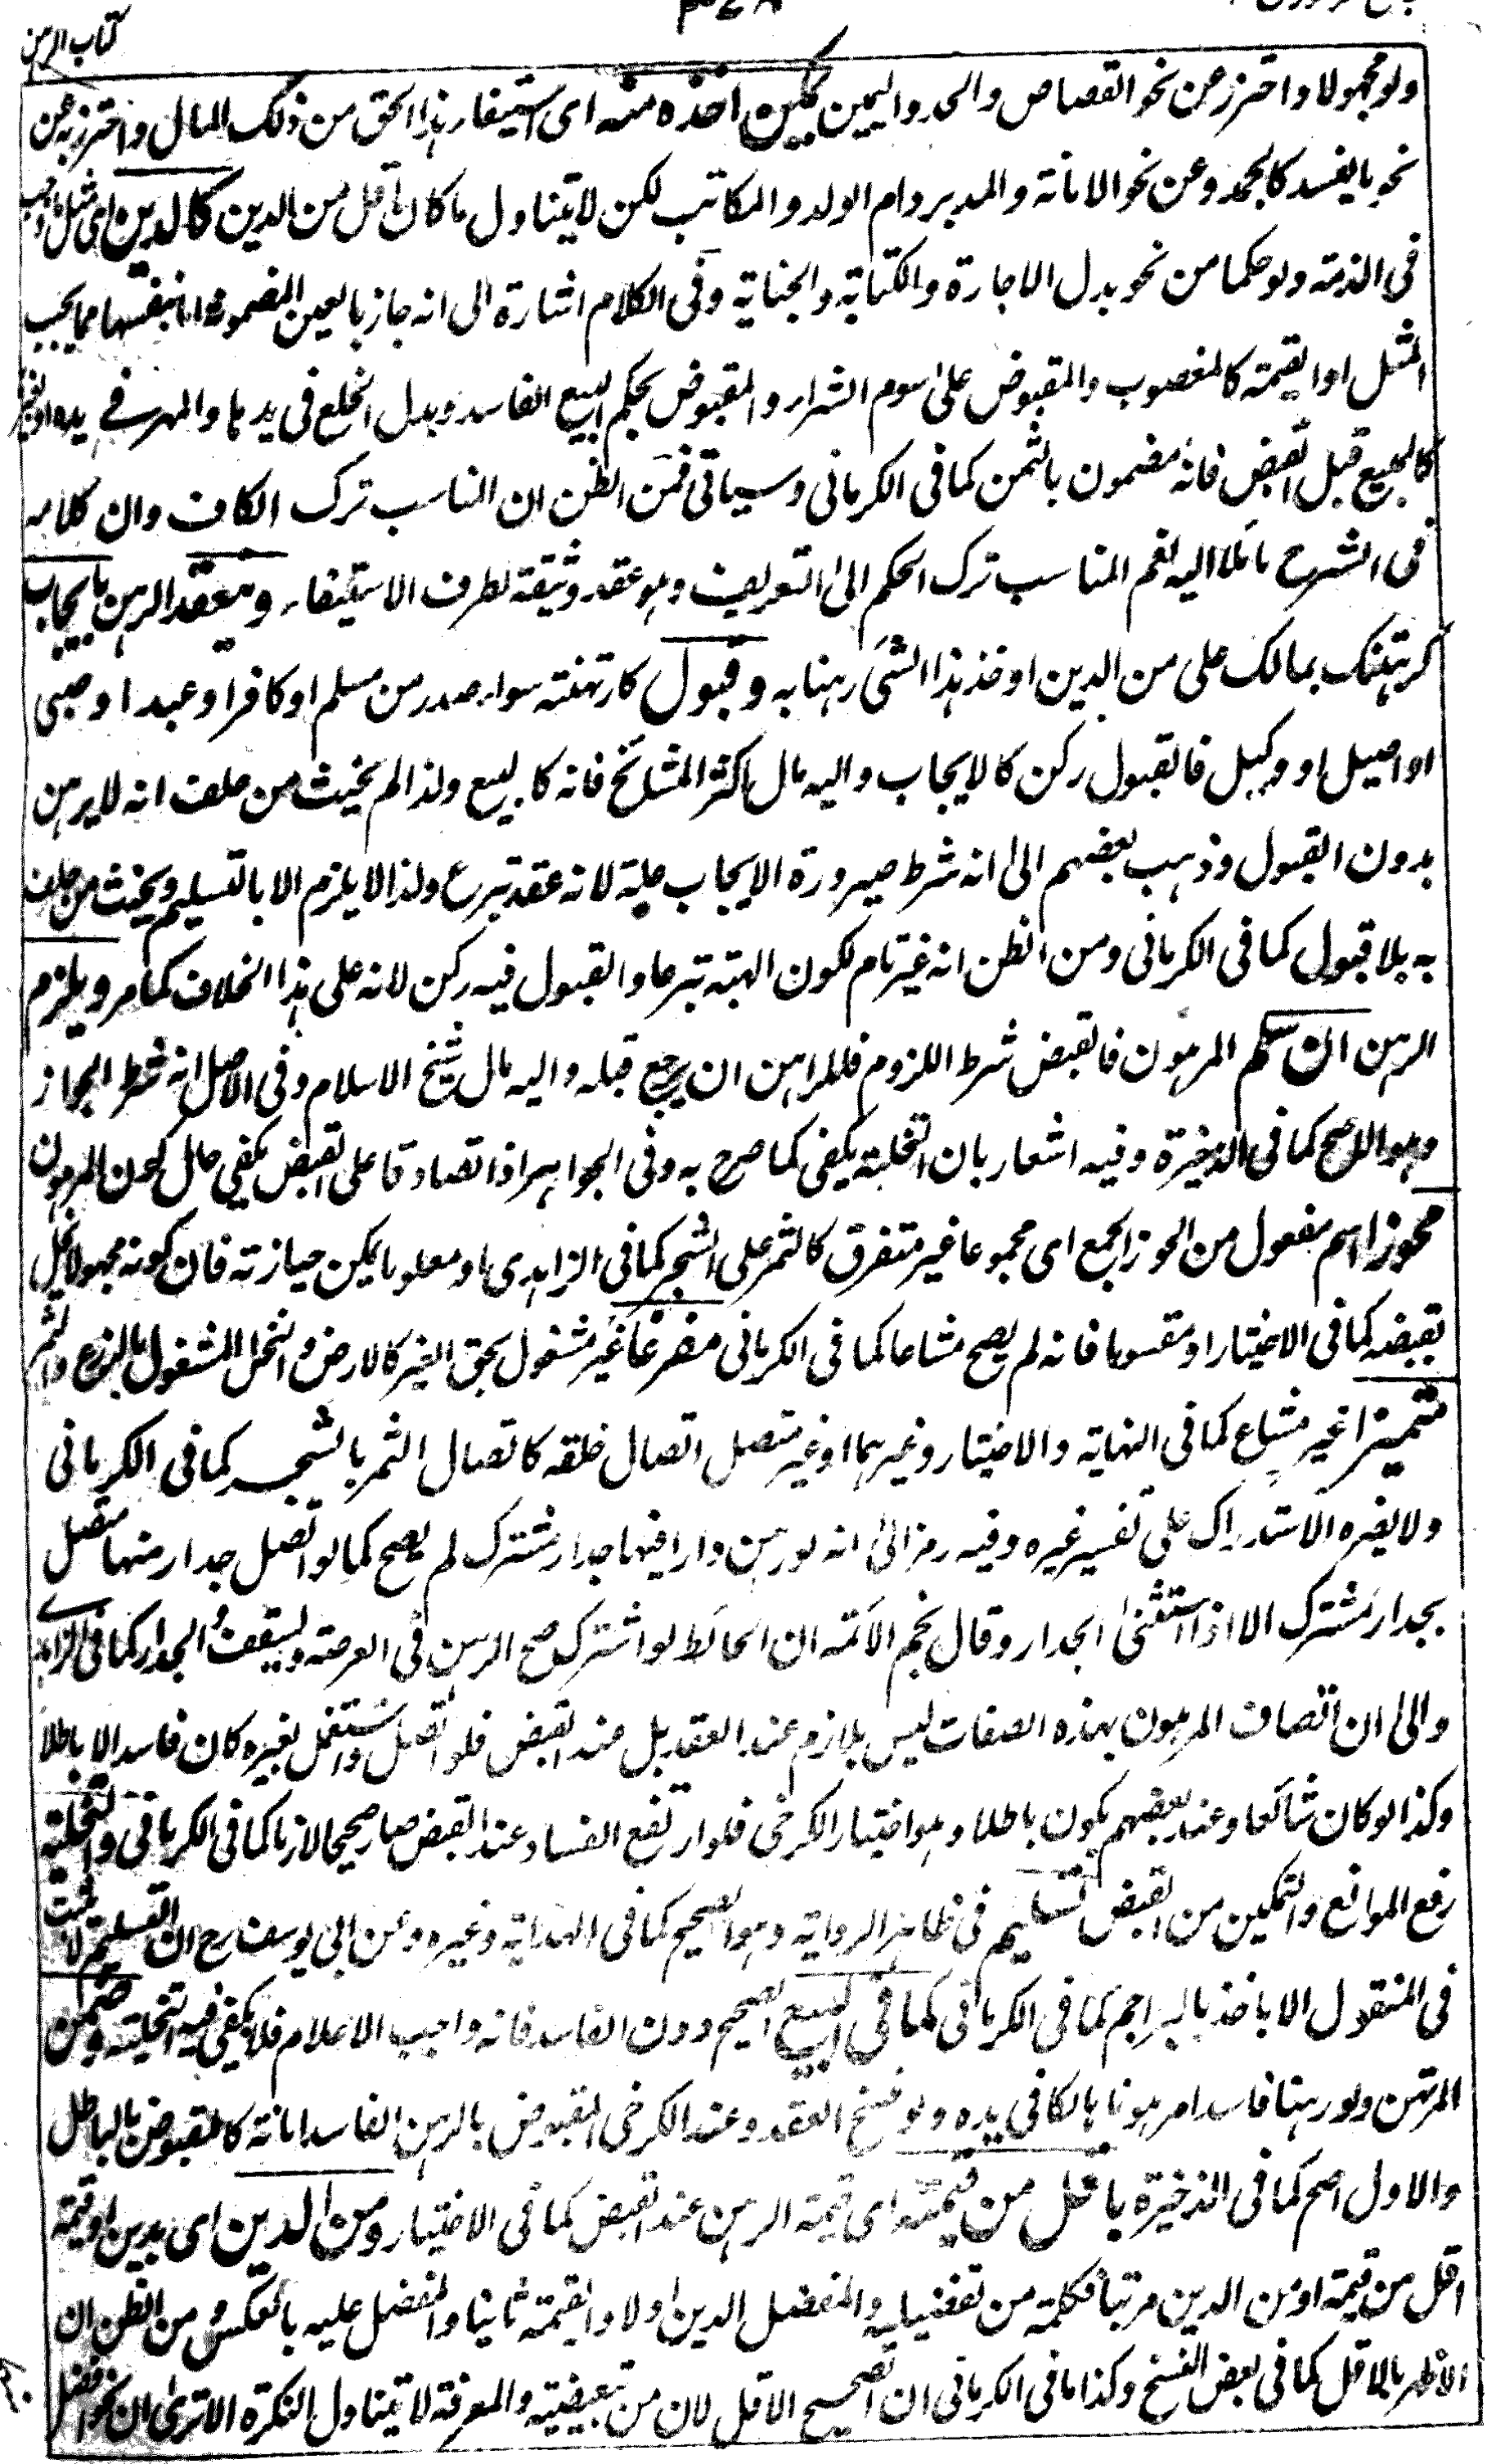 كتاب الرهن
ولو مجهولا واحترز عن نحو القصاص والحد واليمين يمكن اخذه منه اى استيفاء هذا الحق من ذلك المال واحترز به عن
نحو ما يفسد كالجمد وعن نحو الامانة والمدبر وام الولد والمكاتب لكن لا يتناول ما كان اقل من الدين كالدين اى مثل ما وجب
فى الذمة ولو حكما من نحو بدل الاجارة والكتابة والجناية وفى الكلام اشارة الى انه جاز بالعين المضمونة بنفسها مما يجب
المثل او القيمة كالمغصوب والمقبوض على سوم الشراء والمقبوض بحكم البيع الفاسد وبدل الخلع فى يدها والمهر فے يده او بغيرها
كالمبيع قبل القبض فانه مضمون بالثمن كما فى الكرمانى وسياتى فمن الظن ان المناسب ترك الكاف وان كلامه
فى الشرح مائلا اليه نعم المناسب ترك الحكم الى التعريف وهو عقد وثيقة لطرف الاستيفاء وينعقد الرهن بايجاب
كرهنتك بمالك على من الدين او خذ هذا الشئ رهنا به وقبول كارتهنته سواء صدر من مسلم او كافر او عبد او صبى
او اصيل او وكيل فالقبول ركن كالايجاب واليه مال اكثر المشائخ فانه كالبيع ولذا لم يحنث من حلف انه لا يرهن
بدون القبول وذهب بعضهم الى انه شرط صيرورة الايجاب علة لانه عقد تبرع ولذا لا يلزم الا بالتسليم ويحنث من حلف
به بلا قبول كما فى الكرمانى ومن الظن انه غير تام لكون الهبة تبرعا والقبول فيه ركن لانه على هذا الخلاف كما مر ويلزم
الرهن ان سلم المرهون فالقبض شرط اللزوم فللراهن ان يرجع قبله واليه مال شيخ الاسلام وفى الاصل انه شرط الجواز
وهو الاصح كما فى الذخيرة وفيه اشعار بان التخلية يكفى كما صرح به وفى الجواهر اذا تصادقا على القبض يكفى حال كون المرهون
محوزا اسم مفعول من الحوز الجمع اى مجموعا غير متفرق كالثمر على الشجر كما فى الزاهدى او معلوما يمكن حيازته فان كونه مجهولا يخل
بقبضه كما فى الاختيار او مقسوما فانه لم يصح مشاعا كما فى الكرمانى مفرغا غير مشغول بحق الغير كالارض والنخل المشغول بالزرع والثمر
متميزا غير مشاع كما فى النهاية والاختيار وغيرهما او غير متصل اتصال خلقه كاتصال الثمر بالشجر كما فى الكرمانى
ولا يضره الاستدراك على تفسير غيره وفيه رمز الى انه لو رهن دارا فيها جدار مشترك لم يصح كما لو اتصل جدار منها متصل
بجدار مشترك الا اذا استثنى الجدار وقال نجم الائمه ان الحائط لو اشترك صح الرهن فى العرصة والسقف والجدار كما فى الزاهدے
والى ان اتصاف المرهون بهذه الصفات ليس بلازم عند العقد بل عند القبض فلو اتصل واشتغل بغيره كان فاسدا لا باطلا
وكذا لو كان شائعا وعند بعضهم يكون باطلا وهو اختيار الكرخى فلو ارتفع الفساد عند القبض صار صحيحا لازما كما فى الكرمانى والتخلية
رفع الموانع والتمكين من القبض تسليم فى ظاهر الرواية وهو الصحيح كما فى الهداية وغيره وعن ابى يوسف رح ان التسليم لا يثبت
فى المنقول الا باخذ بالبراجم كما فى الكرمانى كما فى البيع الصحيح دون الفاسد فانه واجب الاعلام فلا يكفى فيه التخلية وضمن
المرتهن ولو رهنا فاسدا مرهونا هالكا فى يده ولو فسخ العقد وعند الكرخى المقبوض بالرهن الفاسد امانة كالمقبوض بالباطل
والاول اصح كما فى الذخيرة باقل من قيمته اى قيمة الرهن عند القبض كما فى الاختيار ومن الدين اى بدين او قيمة
اقل من قيمة او من الدين مرتبا فكلمة من تفضيلية والمفضل الدين اولا والقيمة ثانيا والمفضل عليه بالعكس ومن الظن ان
الاظهر بالاقل كما فى بعض النسخ وكذا ما فى الكرمانى ان الصحيح الاقل لان من تبعيضية والمعرفة لا يتناول النكرة الا ترى ان نحو افضل